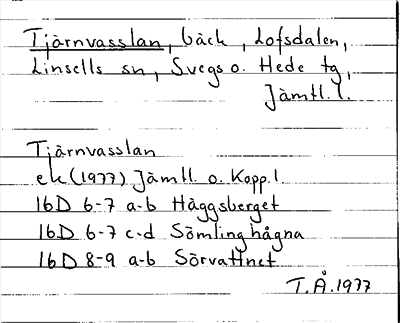 Tjärnvasslan, bäck, Lofsdalen,
Linsells sn, Svegs o. Hede tg,
Jämtl. l.
Tjärnvasslan
ek (1977) Jämtl. o. Kopp. l.
16D 6-7 a-b Häggsberget
16D 6-7 c-d Sömlinghågna
16D 8-9 a-b Sörvattnet
T.Å. 1977